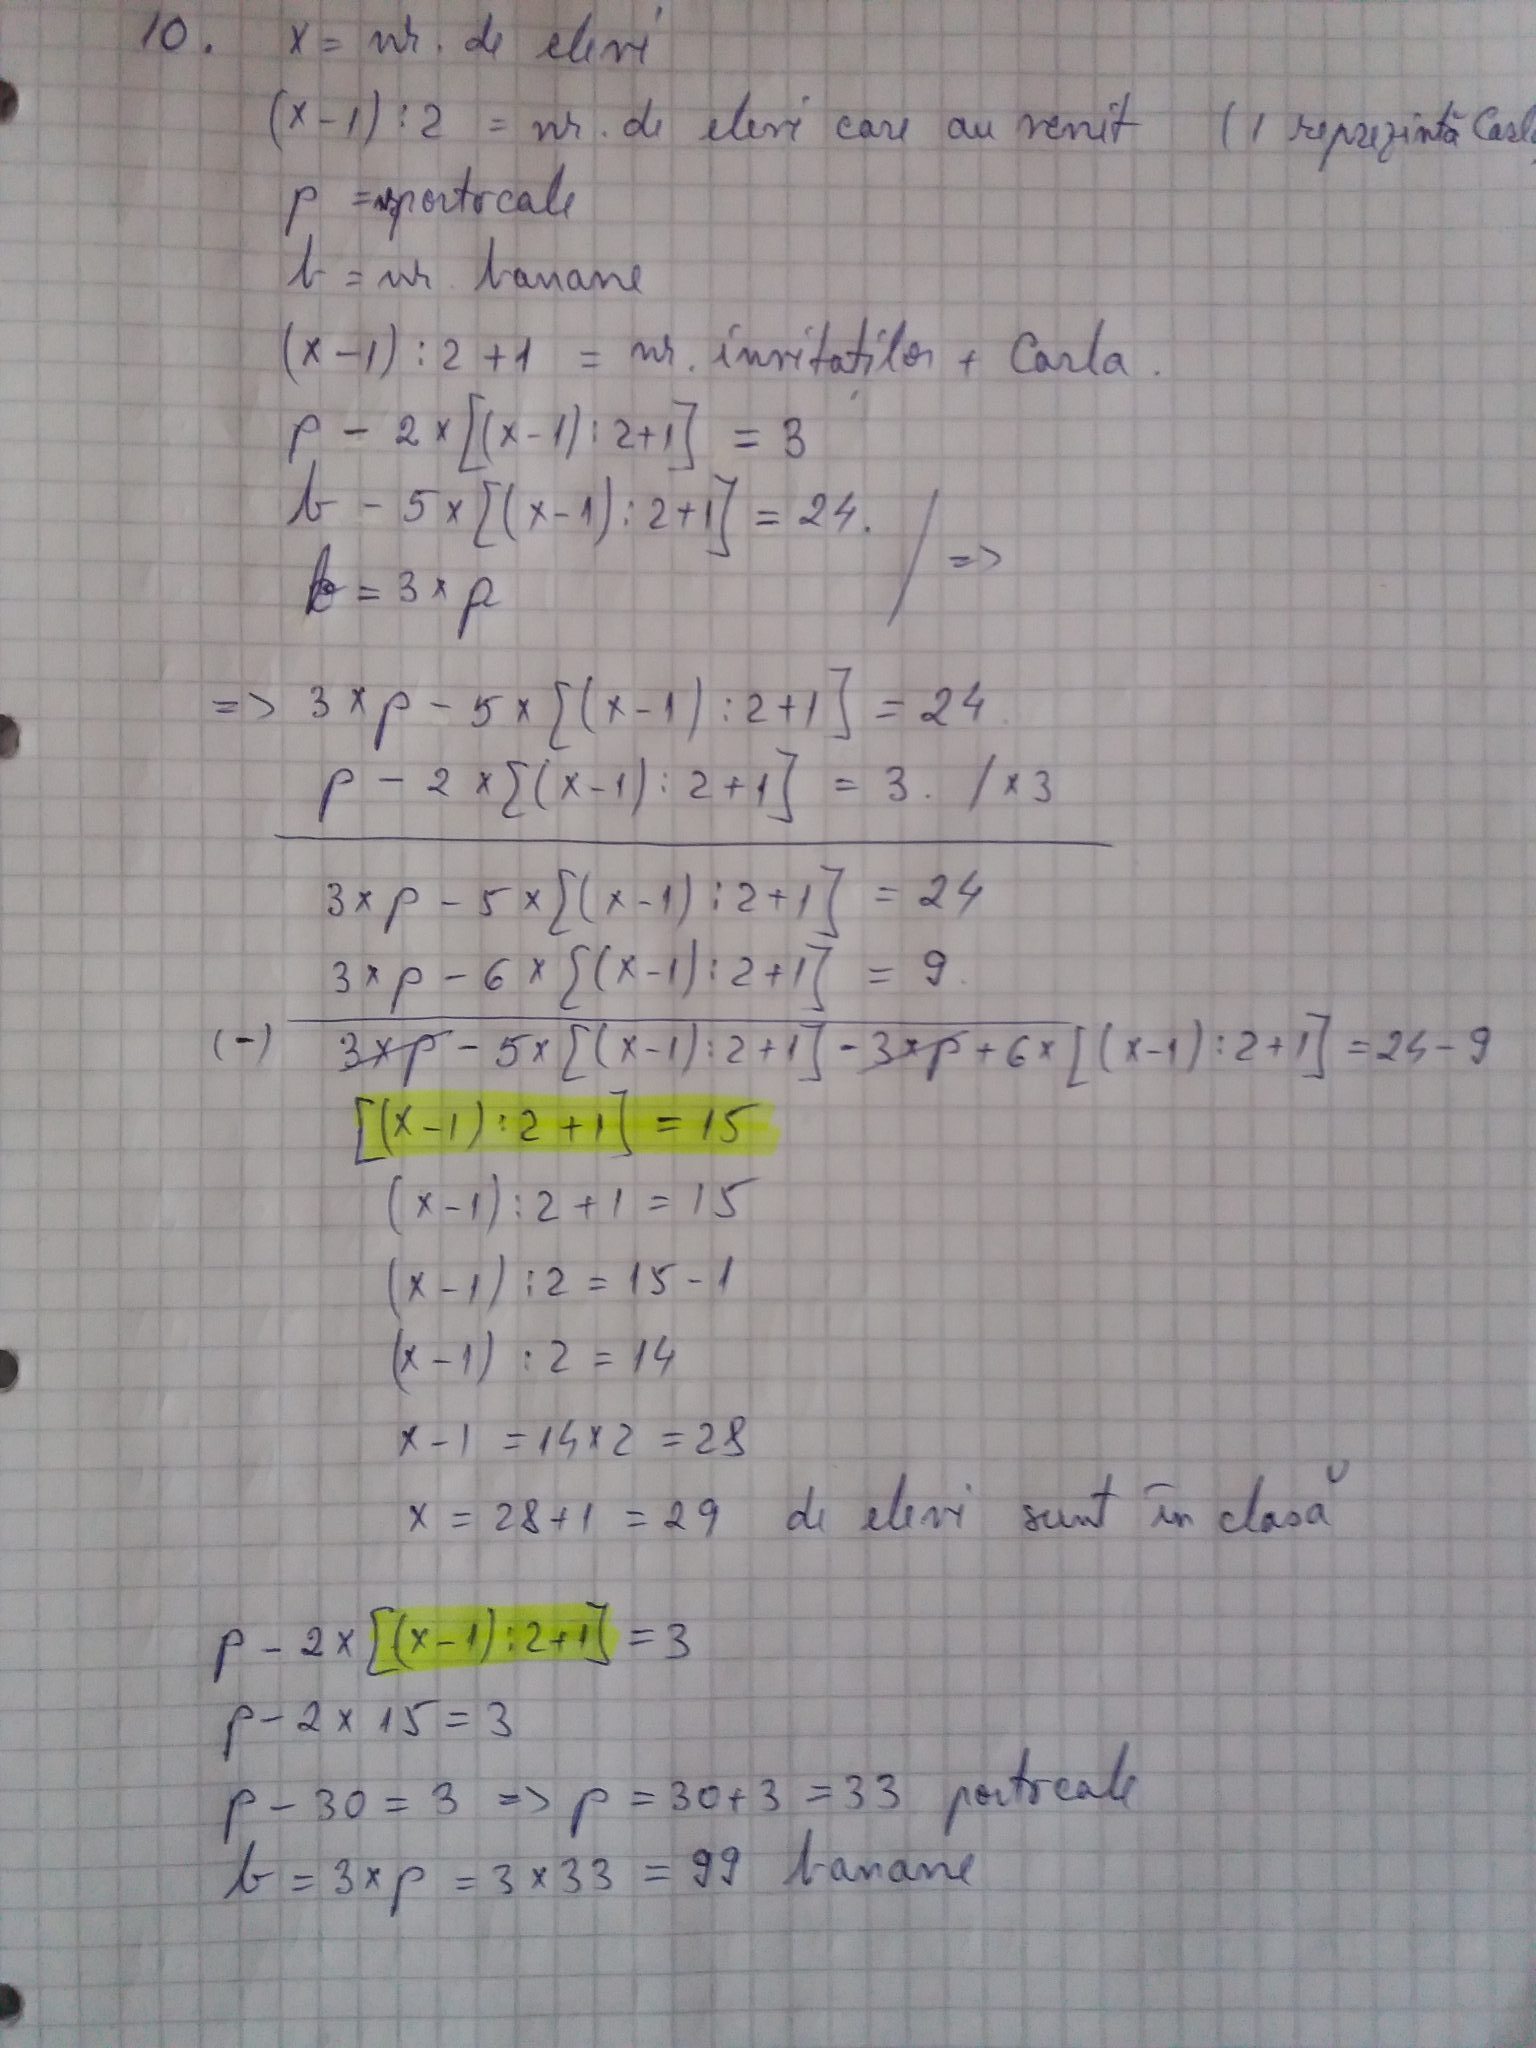 10. x = nr. de elevi
(x-1) : 2 = nr. de elevi care au venit (1 reprezintă Carla
p = portocale
b = nr. banane
(x-1) : 2 + 1 = nr. invitaților + Carla.
p - 2 × [(x-1) : 2+1] = 3
b - 5 × [(x-1) : 2+1] = 24. / =>
b = 3 × p
=> 3 × p - 5 × [(x-1) : 2+1] = 24.
p - 2 × [(x-1) : 2+1] = 3. / × 3
3 × p - 5 × [(x-1) : 2+1] = 24
3 × p - 6 × [(x-1) : 2+1] = 9.
(-) 3×p - 5× [(x-1) : 2+1] - 3×p + 6× [(x-1) : 2+1] = 24 - 9
[(x-1) : 2 + 1] = 15
(x-1) : 2 + 1 = 15
(x-1) : 2 = 15 - 1
(x-1) : 2 = 14
x - 1 = 14×2 = 28
x = 28+1 = 29 de elevi sunt în clasă
p - 2 × [(x-1) : 2+1] = 3
p - 2 × 15 = 3
p - 30 = 3 => p = 30+3 = 33 portocale
b = 3×p = 3 × 33 = 99 banane